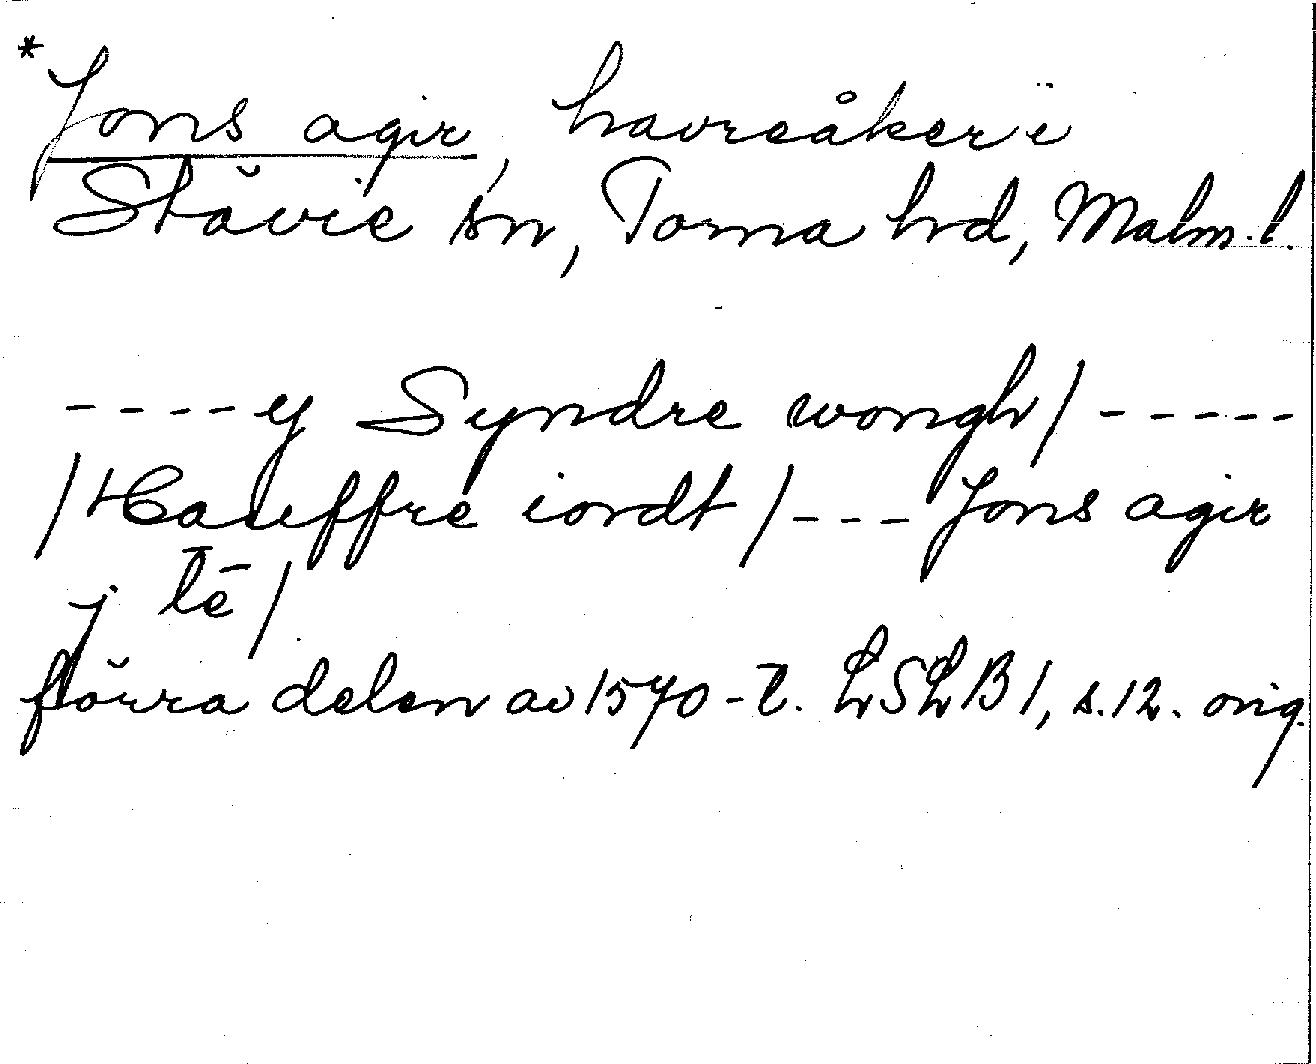 *Jons agir, havreåker i
Stävie sn, Torna hd, Malm.l.
----y Syndre wongh/-----
/Hauffre iordt/---Jons agir
j tē/
förra delen av 1570-t. LSLB1, s.12. orig.